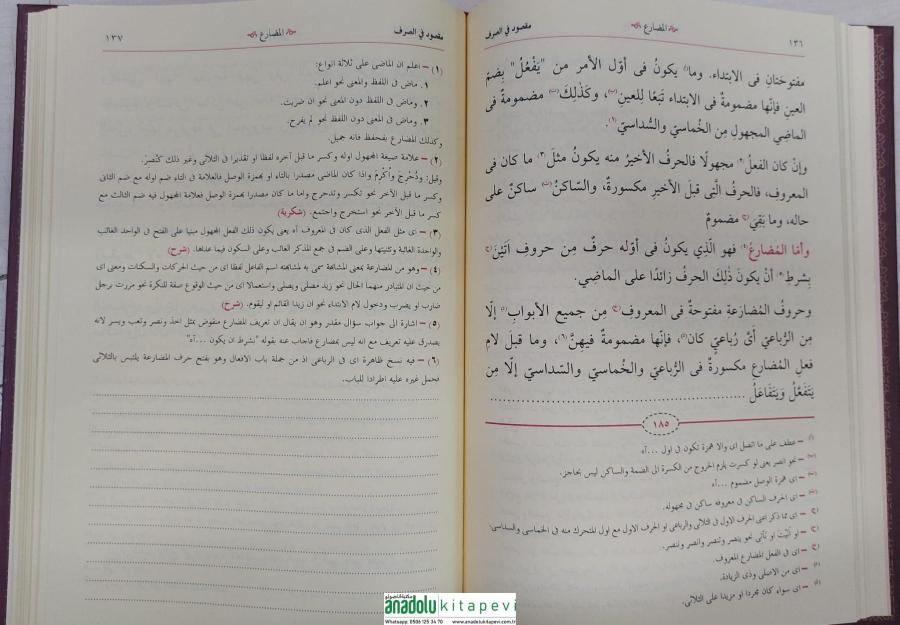 ١٣٦ المضارع مقصود في الصرف
مفتوحتانِ فى الابتداء. وما يكونُ فى أوّل الأمر من "يَفْعُلُ" بِضمّ
العينِ فإنّها مضمومةٌ فى الابتداء تَبَعًا لِلعينِ، وكَذٰلِكَ مضمومةٌ فى
الماضِي المجهولِ مِن الخُماسيّ والسُّداسيّ(١).
وإنْ كان الفعلُ مجهولًا فالحرفُ الأخيرُ منه يكونُ مثلَ ما كان فى
المعروفِ، فالحرفُ الَّتِى قبلَ الأخيرِ مكسورةٌ، والسّاكنُ ساكنٌ على
حاله، وما بَقِيَ مضمومٌ
وأمّا المُضارعُ فهو الَّذِي يكونُ فى أوّله حرفٌ مِن حروفِ اَتَيْنَ
بِشرطِ أنْ يكونَ ذٰلِكَ الحرفُ زائدًا على الماضِي.
وحروفُ المُضارَعةِ مفتوحةٌ فى المعروفِ مِن جميعِ الأبوابِ إلّا
مِن الرُّباعيّ أيّ رُباعيٍّ كان، فإنّها مضمومةٌ فيهِنَّ(٦)، وما قبلَ لامِ
فعلِ المُضارِعِ مكسورةٌ فى الرُّباعيّ والخُماسيّ والسّداسيّ إلّا مِن
يَتَفَعَّلُ وَيَتَفَاعَلُ
١٨٥
– عطف على ما اتصل اى والا همزة تكون فى اول ...آه
– نحو انصر يعنى لو كسرت يلزم الخروج من الكسرة الى الضمة والساكن ليس بحاجز.
– اى همزة الوصل مضموم ...آه
– اى الحرف الساكن فى معروفه ساكن فى مجهوله.
– اى مما ذكر اعنى الحرف الاول فى الثلاثى والرباعى او الحرف الاول مع اول المتحرك منه فى الخماسى والسداسى.
– او اَتَيْتَ او نَأْتِى نحو ينصر وتنصر وانصر وننصر.
– اى فى الفعل المضارع المعروف.
– اى من الاصلى وذى الزيادة.
– اى سواء كان مجردا او مزيدا على الثلاثى.
مقصود في الصرف المضارع ١٣٧
(١) – اعلم ان الماضى على ثلاثة انواع:
١. ماض فى اللفظ والمعنى نحو اعلم.
٢. وماض فى اللفظ دون المعنى نحو ان ضربت.
٣. وماض فى المعنى دون اللفظ نحو لم يفرح.
وكذلك المضارع بفحفظ فانه جميل.
(٢) – علامة صيغة المجهول اوله وكسر ما قبل آخره لفظا او تقديرا فى الثلاثى وغير ذلك كنُصْرَ.
وقيل: ودُحْرِجَ واُكْرِمَ واذا كان الماضى مصدرا بالتاء او بهمزة الوصل فالعلامة فى التاء ضم اوله مع ضم الثانى
وكسر ما قبل الآخر نحو تكسر وتدحرج واما ما كان مصدرا بهمزة الوصل فعلامة المجهول فيه ضم الثالث مع
كسر ما قبل الآخر نحو استخرج واجتمع. (شكرية)
(٣) – اى مثل الفعل الذى كان فى المعروف آه يعنى يكون ذلك الفعل المجهول مبنيا على الفتح فى الواحد الغائب
والواحدة الغائبة وتثنيتها وعلى الضم فى جمع المذكر الغائب وعلى السكون فيما عداها. (شرح)
(٤) – وهو من المضارعة بمعنى المشابهة سمى به لمشابهته اسم الفاعل لفظا اى من حيث الحركات والسكنات ومعنى اى
من حيث ان المتبادر منهما الحال نحو زيد مصلى ويصلى واستعمالا اى من حيث الوقوع صفة للنكرة نحو مررت برجل
ضارب او يضرب ودخول لام الابتداء نحو ان زيدا لقائم او ليقوم. (شرح)
(٥) – اشارة الى جواب سؤال مقدر وهو ان يقال ان تعريف المضارع منقوض بمثل اخذ ونصر وتعب ويسر لانه
يصدق عليه تعريف مع انه ليس بمضارع فاجاب عنه بقوله "بشرط ان يكون ...آه"
(٦) – فيه نسخ ظاهرة اى فى الرباعى اذ من جملة باب الافعال وهو بفتح حرف المضارعة يلتبس بالثلاثى
فحمل غيره عليه اطرادا للباب.
مكتبة اناضولو
anadolukitapevi
Whatsapp: 0506 125 34 70 www.anadolukitapevi.com.tr